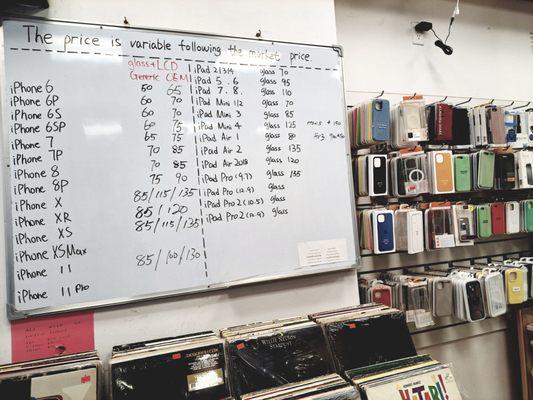 The price is variable following the market price.
glass+LCD
Generic OEM
iPhone 6 50 65
iPhone 6P 60 70
iPhone 6S 60 70
iPhone 6SP 60 75
iPhone 7 65 75
iPhone 7P 70 85
iPhone 8 70 85
iPhone 8P 75 90
iPhone X 85/115/135
iPhone XR 85/120
iPhone XS 85/115/135
iPhone XS Max
iPhone 11 85/100/130
iPhone 11 Pro
iPad 2/3/4 glass 70
iPad 5. 6 glass 95
iPad 7. 8. glass 110
iPad Mini 1/2 glass 70
iPad Mini 3 glass 85
iPad Mini 4 glass 125
iPad Air 1 glass 80
iPad Air 2 glass 135
iPad Air 2018 glass 120
iPad Pro (9.7) glass 155
iPad Pro (12.9) glass
iPad Pro 2 (10.5) glass
iPad Pro 2 (12.9) glass
WILLIE NELSON
STARDUST